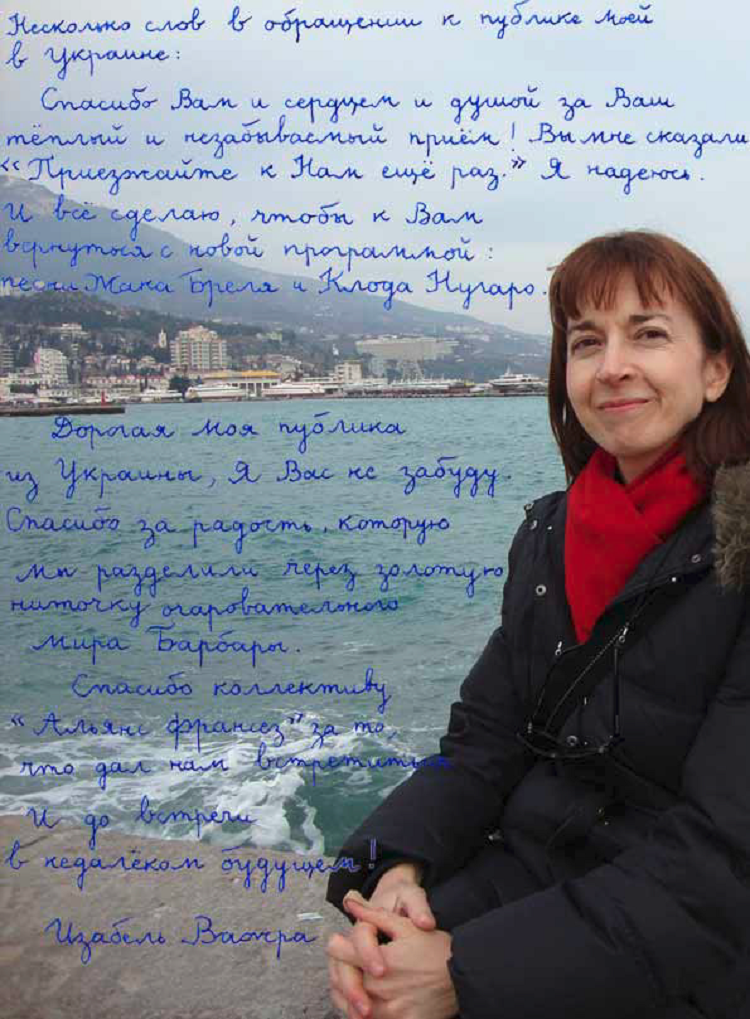 Несколько слов в обращении к публике моей
в Украине:
Спасибо Вам и сердцем и душой за Ваш
тёплый и незабываемый приём! Вы мне сказали
"Приезжайте к Нам ещё раз." Я надеюсь.
И всё сделаю, чтобы к Вам
вернуться с новой программой:
песни Жака Бреля и Клода Нугаро.
Дорогая моя публика
из Украины, Я Вас не забуду.
Спасибо за радость, которую
мы разделили через золотую
ниточку очаровательного
мира Барбары.
Спасибо коллективу
"Альянс франсез" за то,
что дал нам встретиться
И до встречи
в недалёком будущем!
Изабель